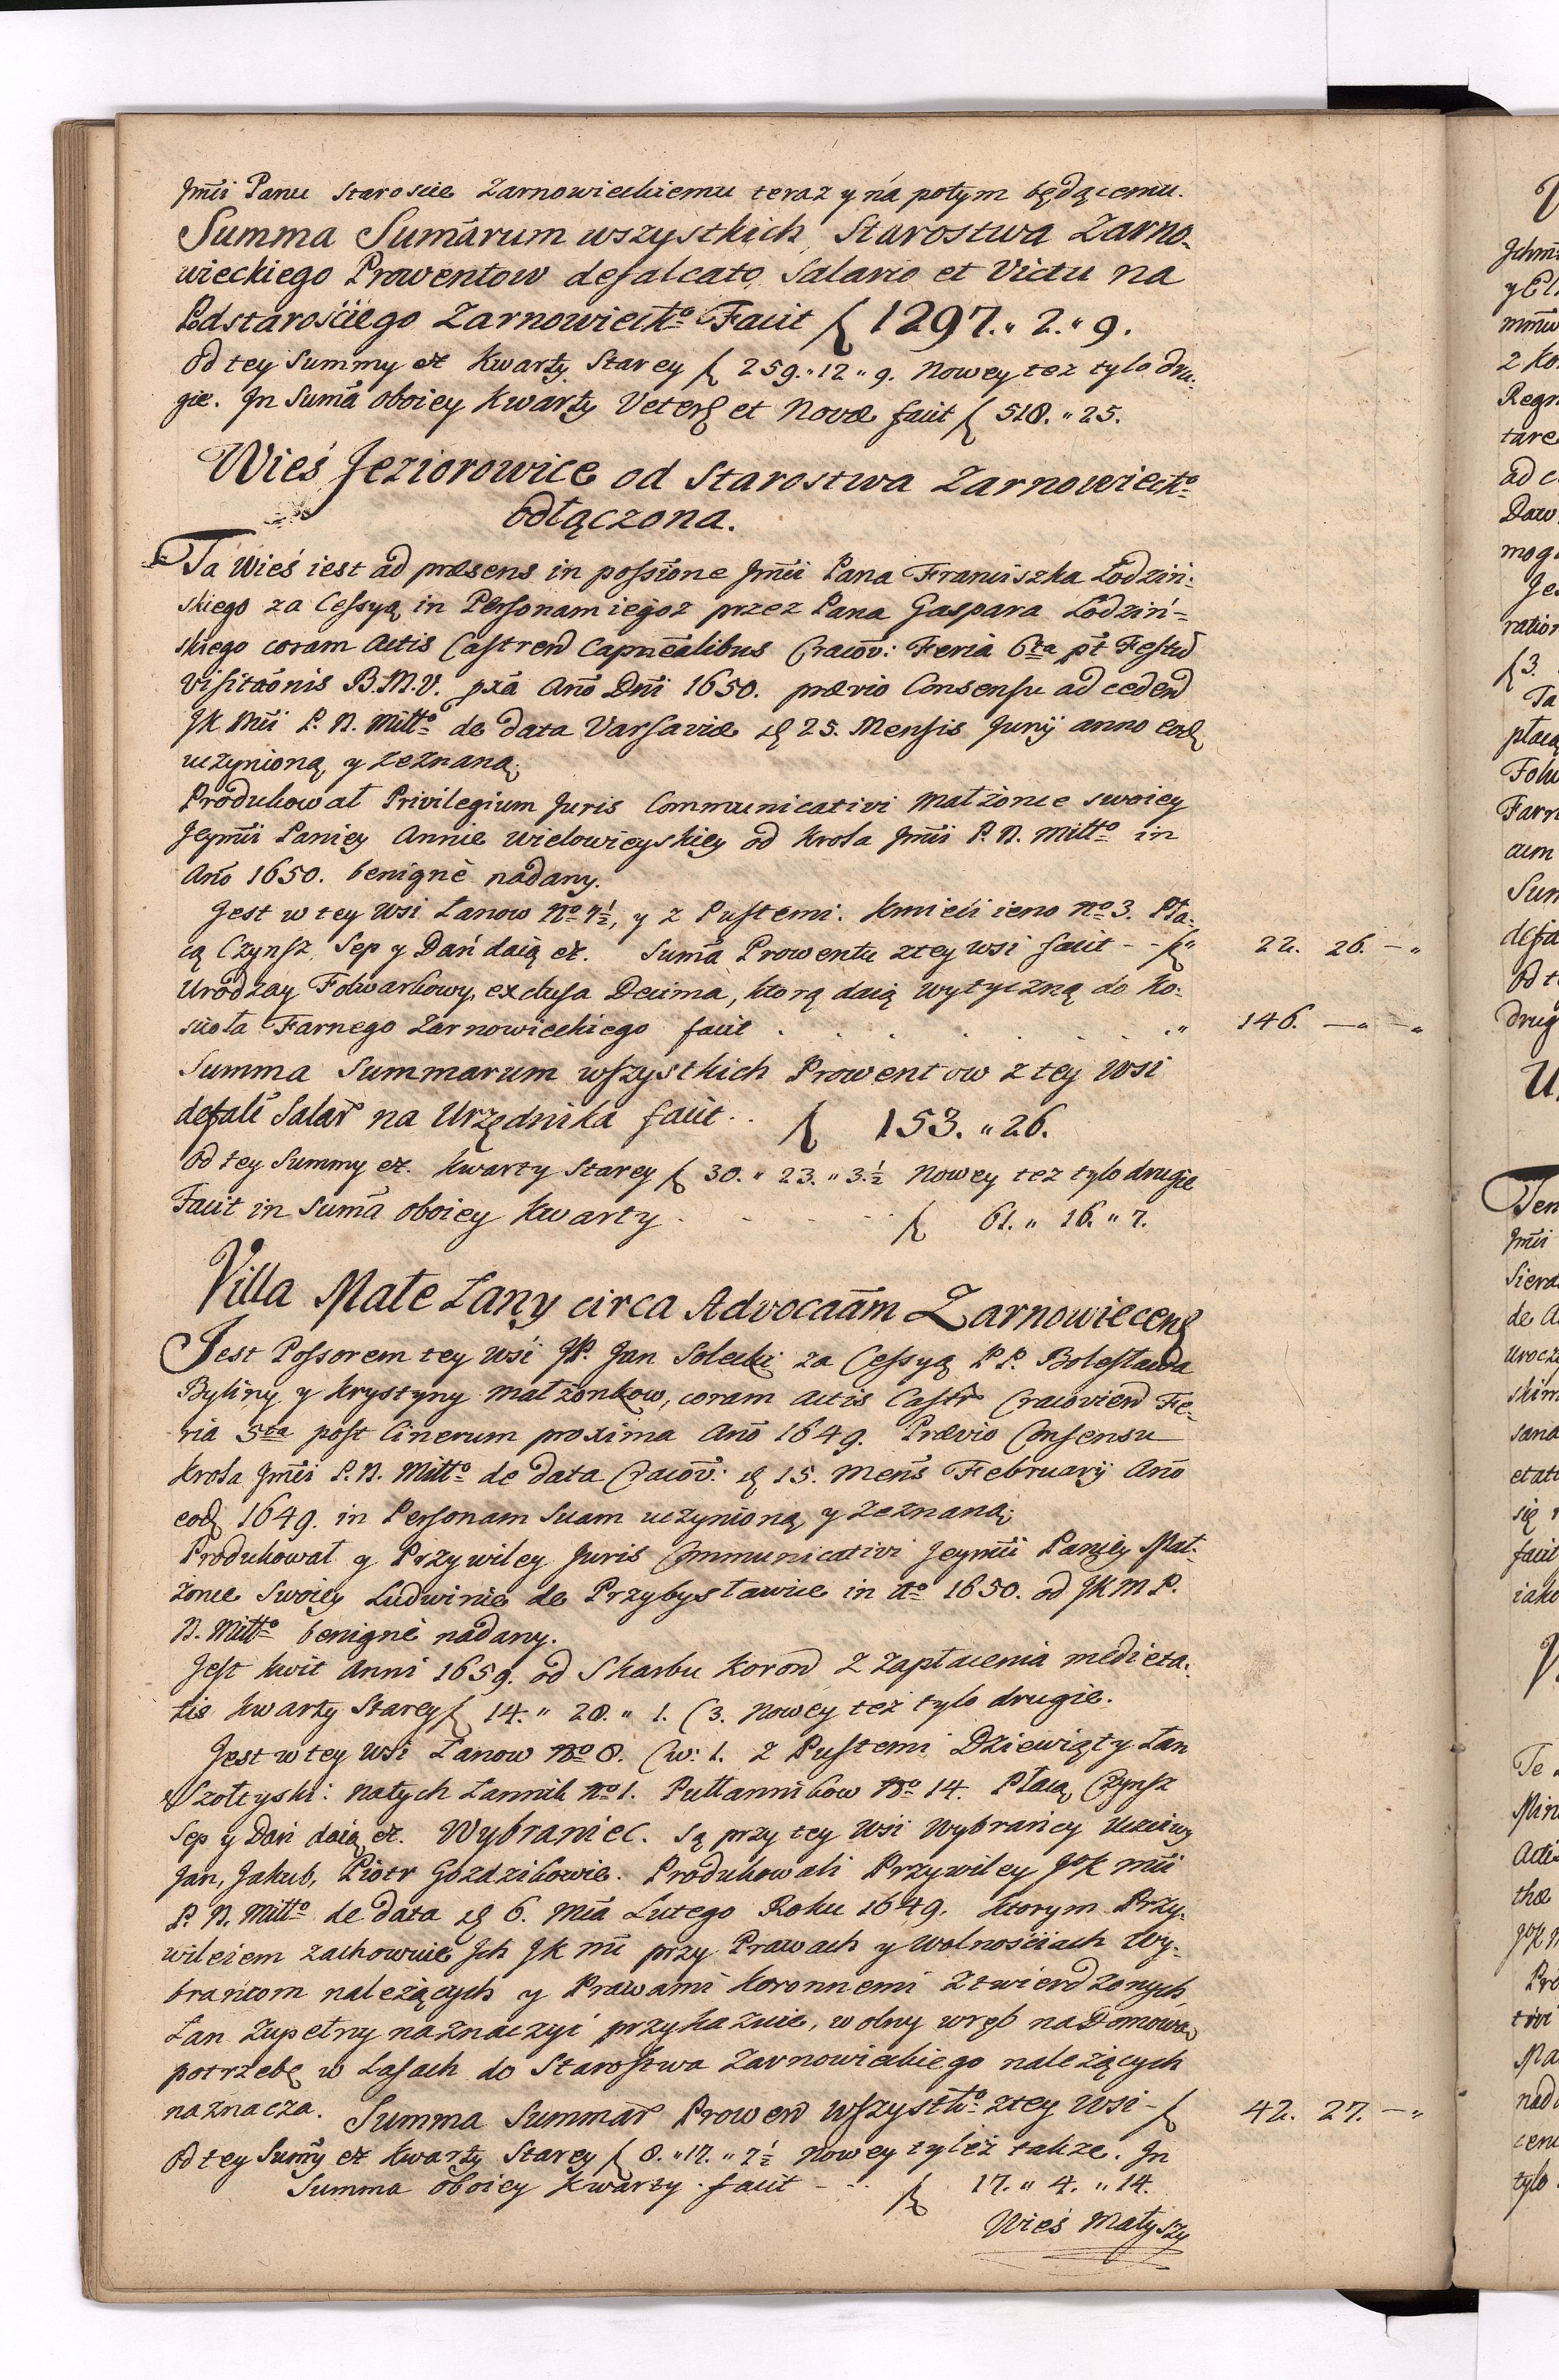 Jmći Panu Staroscie Zarnowieckiemu teraz y na potym będącemu.
Summa Sumārum wszystkich Starostwa Zarno-
wieckiego Prowentow defalcato Salario et Victu na
Podstarościego Zarnowieckº Facit f 1297. " 2. " 9.
Od tey Summy etc Kwarty Starey f 259. " 12 " 9. Nowey tez tylo dru-
gie. Jn Sumā oboiey Kwarty Veteris et Novæ facit f 518. " 25.
Wieś Jeziorowice od Starostwa Zarnowieckº
odłączona.
Ta Wieś iest ad præsens in possione Jmći Pana Franciszka Łodziń-
skiego za Cessyą in Personam iegoz przez Pana Gaspara Łodziń-
skiego coram Actis Castren Capnēalibus Cracov: Feria 6ta pt Festu
Visitaōnis B.M.V. pxā Ano Dni 1650. prævio Consensu ad ceden
JK Mći P. N. Mittº de data Varsaviæ 25. Mensis Junij anno eod
uczynioną y zeznaną.
Produkował Privilegium Juris Communicativi małżonce swoiey
Jeymći Paniey Annie Wielowieyskiey od Krola Jmći P. N. Miłłº in
Ano 1650. benignè nadany.
Jest w tey Wsi Łanow Nº 7½, y z Pustemi. Kmieci ieno Nº 3. Pła-
cą Czynsz, Sep y Dań daią etc. Sumā Prowentu z tey wsi facit - - f " 22. 26. — "
Urodzay Folwarkowy, exclusa Decima, ktorą daią wytyczną do Ko-
scioła Farnego Zarnowieckiego facit . . . . . . " 146. — " — "
Summa Summarum wszystkich Prowentow z tey Wsi
defalc Salar na Urzędnika facit . . f 153. " 26.
Od tey Summy etc. Kwarty Starey f 30. " 23. " 3½ Nowey tez tylo drugie
Facit in Sumā oboiey Kwarty . - - - - f 61. " 16. " 7.
Villa Małe Łany circa Advocaām Zarnowiecens
Jest Possorem tey Wśi JP. Jan Solecki za Cessyą PP. Bolesława
Byliny y Krystyny małżonkow, coram Actis Castr Cracovien Fe-
ria 5ta post Cinerum proxima Ano 1649. Prævio Consensu
Krola Jmći P. N. Mittº de data Cracov: 15. Mens Februarij Ano
eod 1649. in Personam Suam uczynioną y zeznaną;
Produkował y Przywiley Juris Communicativi Jeymći Paniey Mał-
żonce Swoiey Ludwinie de Przybysławice in Aº 1650. od JKM P.
N. Mittº benignè nadany.
Jest Kwit Anni 1659. od Skarbu Koron z zapłacenia medieta-
tis Kwarty Starey f 14. " 28. " 1. (3. Nowey też tylo drugie.
Jest w tey wsi Łanow Nº 8. Cw: 1. z Pustemi Dziewiąty Łan
Szołtyski: na tych Łannik Nº 1. Pułłannikow Nº 14. Płacą Czynsz
Sep y Dań daią etc. Wybraniec. Są przy tey Wsi Wybrańcy Uczciwy
Jan, Jakub, Piotr Gozdzikowie. Produkowali Przywiley JoK mći
P. N. Mittº de data 6. Mcā Lutego Roku 1649. ktorym Przy-
wileiem zachownie Jch JK mć przy Prawach y Wolnościach Wy-
brańcom należących y Prawami Koronnemi ztwierdzonych,
Łan zupełny naznaczyć przykazuie, wolny wręb na Domową
potrzebę w Lasach do Starostwa Zarnowieckiego należących
naznacza. Summa Summar Prowen wszystkº z tey Wsi - f 42. 27. — "
Od tey Sumy etc Kwarty Starey f 8. " 17. " 7½ Nowey tyleż takze. Jn
Summa oboiey Kwarty . facit - - . . f 17. " 4. " 14.
Wieś Małyszy